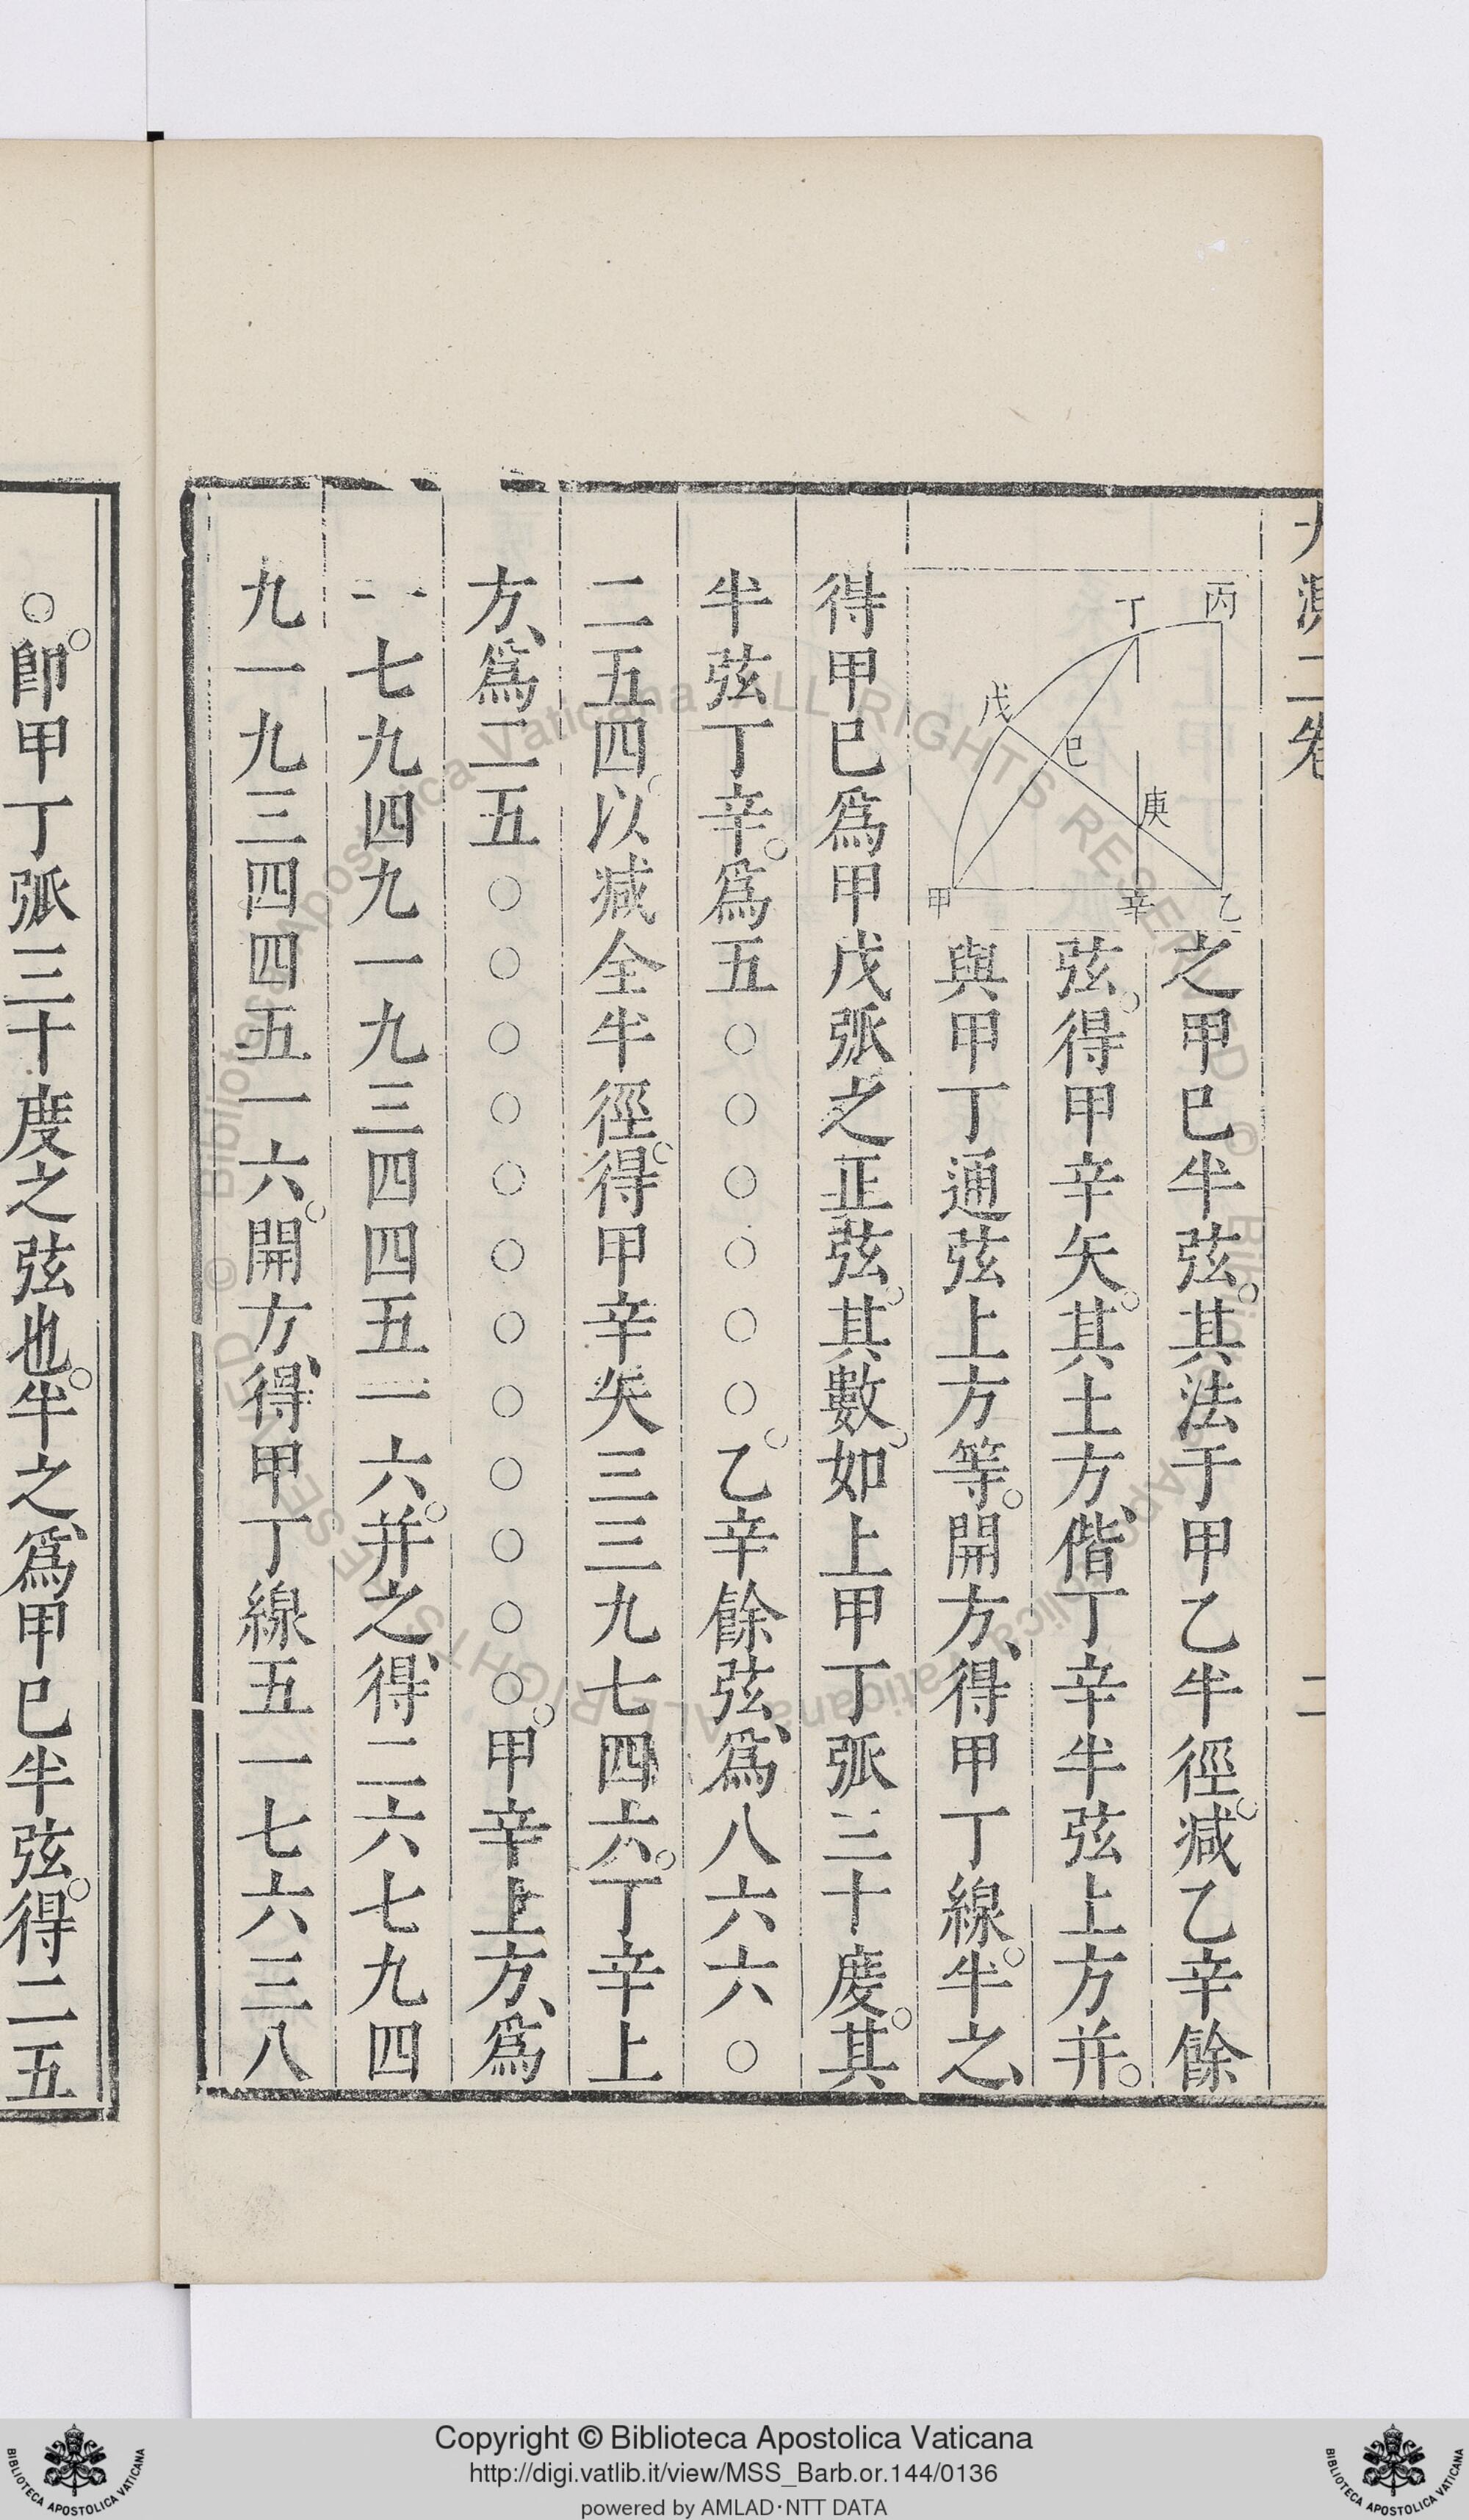 大測二卷 二
丙
丁
戊
巳
庚
甲
辛
乙
之甲巳半弦。其法于甲乙半徑。减乙辛餘
弦。得甲辛矢。其上方、偕丁辛半弦上方并。
與甲丁通弦上方等。開方、得甲丁線。半之、
得甲巳爲甲戊弧之正弦。其數如上甲丁弧三十度。其
半弦丁辛。爲五○○○○○○。乙辛餘弦、爲八六六○
二五四。以减全半徑。得甲辛矢三三九七四六。丁辛上
方、爲二五○○○○○○○○○○○○。甲辛上方、爲
一七九四九一九三四四五一六。并之、得二六七九四
九一九三四四五一六。開方、得甲丁線五一七六三八
○。卽甲丁弧三十度之弦也。半之、爲甲巳半弦。得二五
Copyright © Biblioteca Apostolica Vaticana
http://digi.vatlib.it/view/MSS_Barb.or.144/0136
powered by AMLAD·NTT DATA
BIBLIOTECA APOSTOLICA VATICANA
BIBLIOTECA APOSTOLICA VATICANA